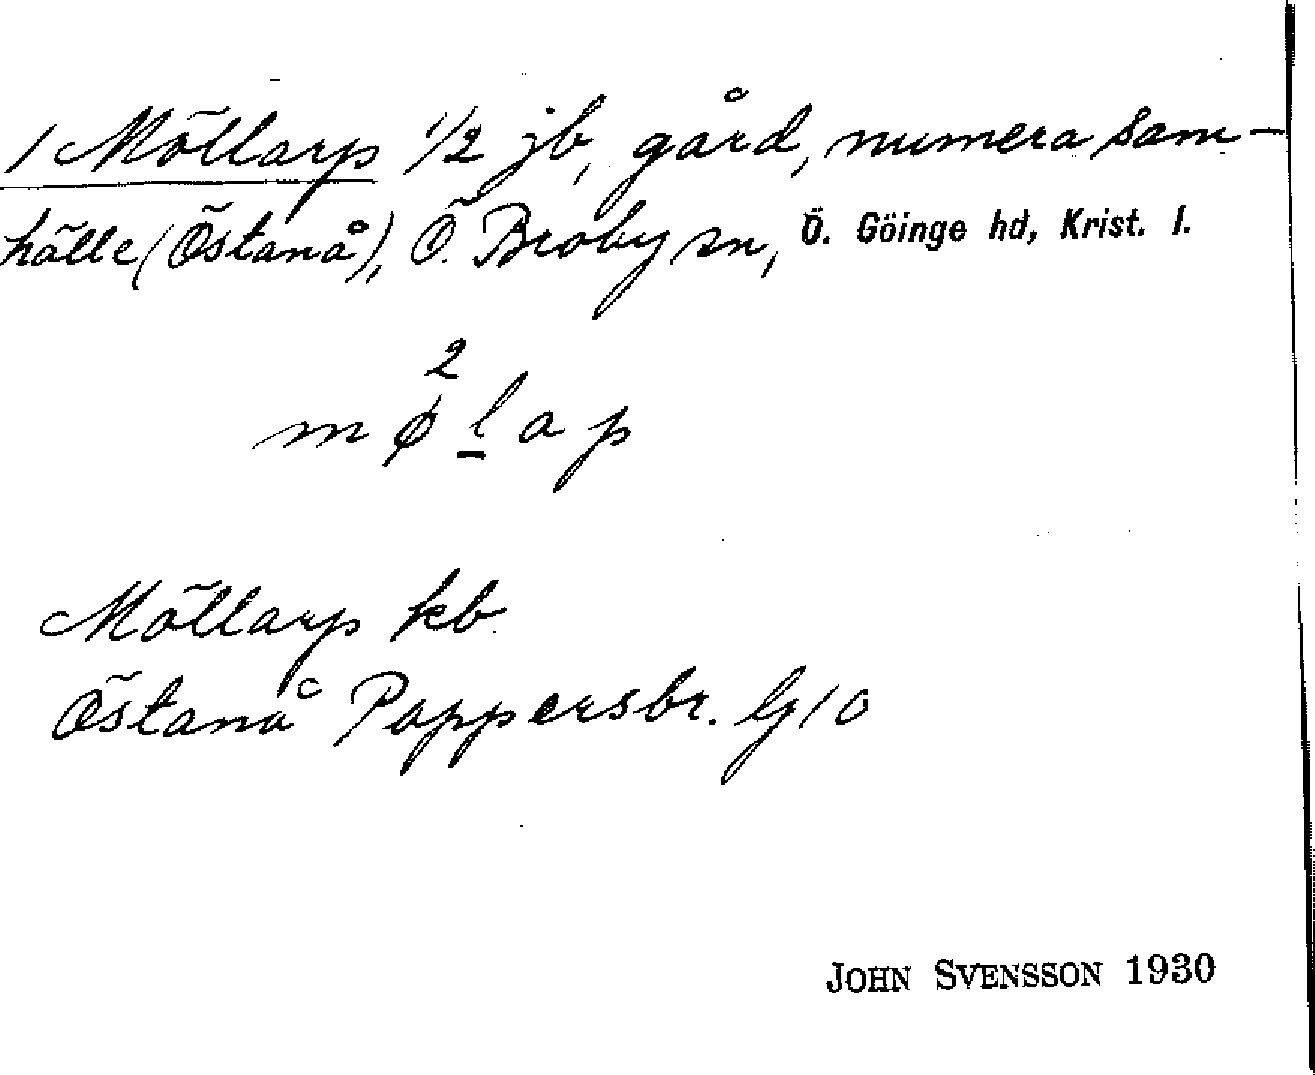 1 Möllarp 1/2 jb, gård, numera sam-
hälle (Östanå), Ö. Broby sn, Ö. Göinge hd, Krist. l.
2
m ø l a p
Möllarp kb
Östanå Pappersbr. G10
JOHN SVENSSON 1930